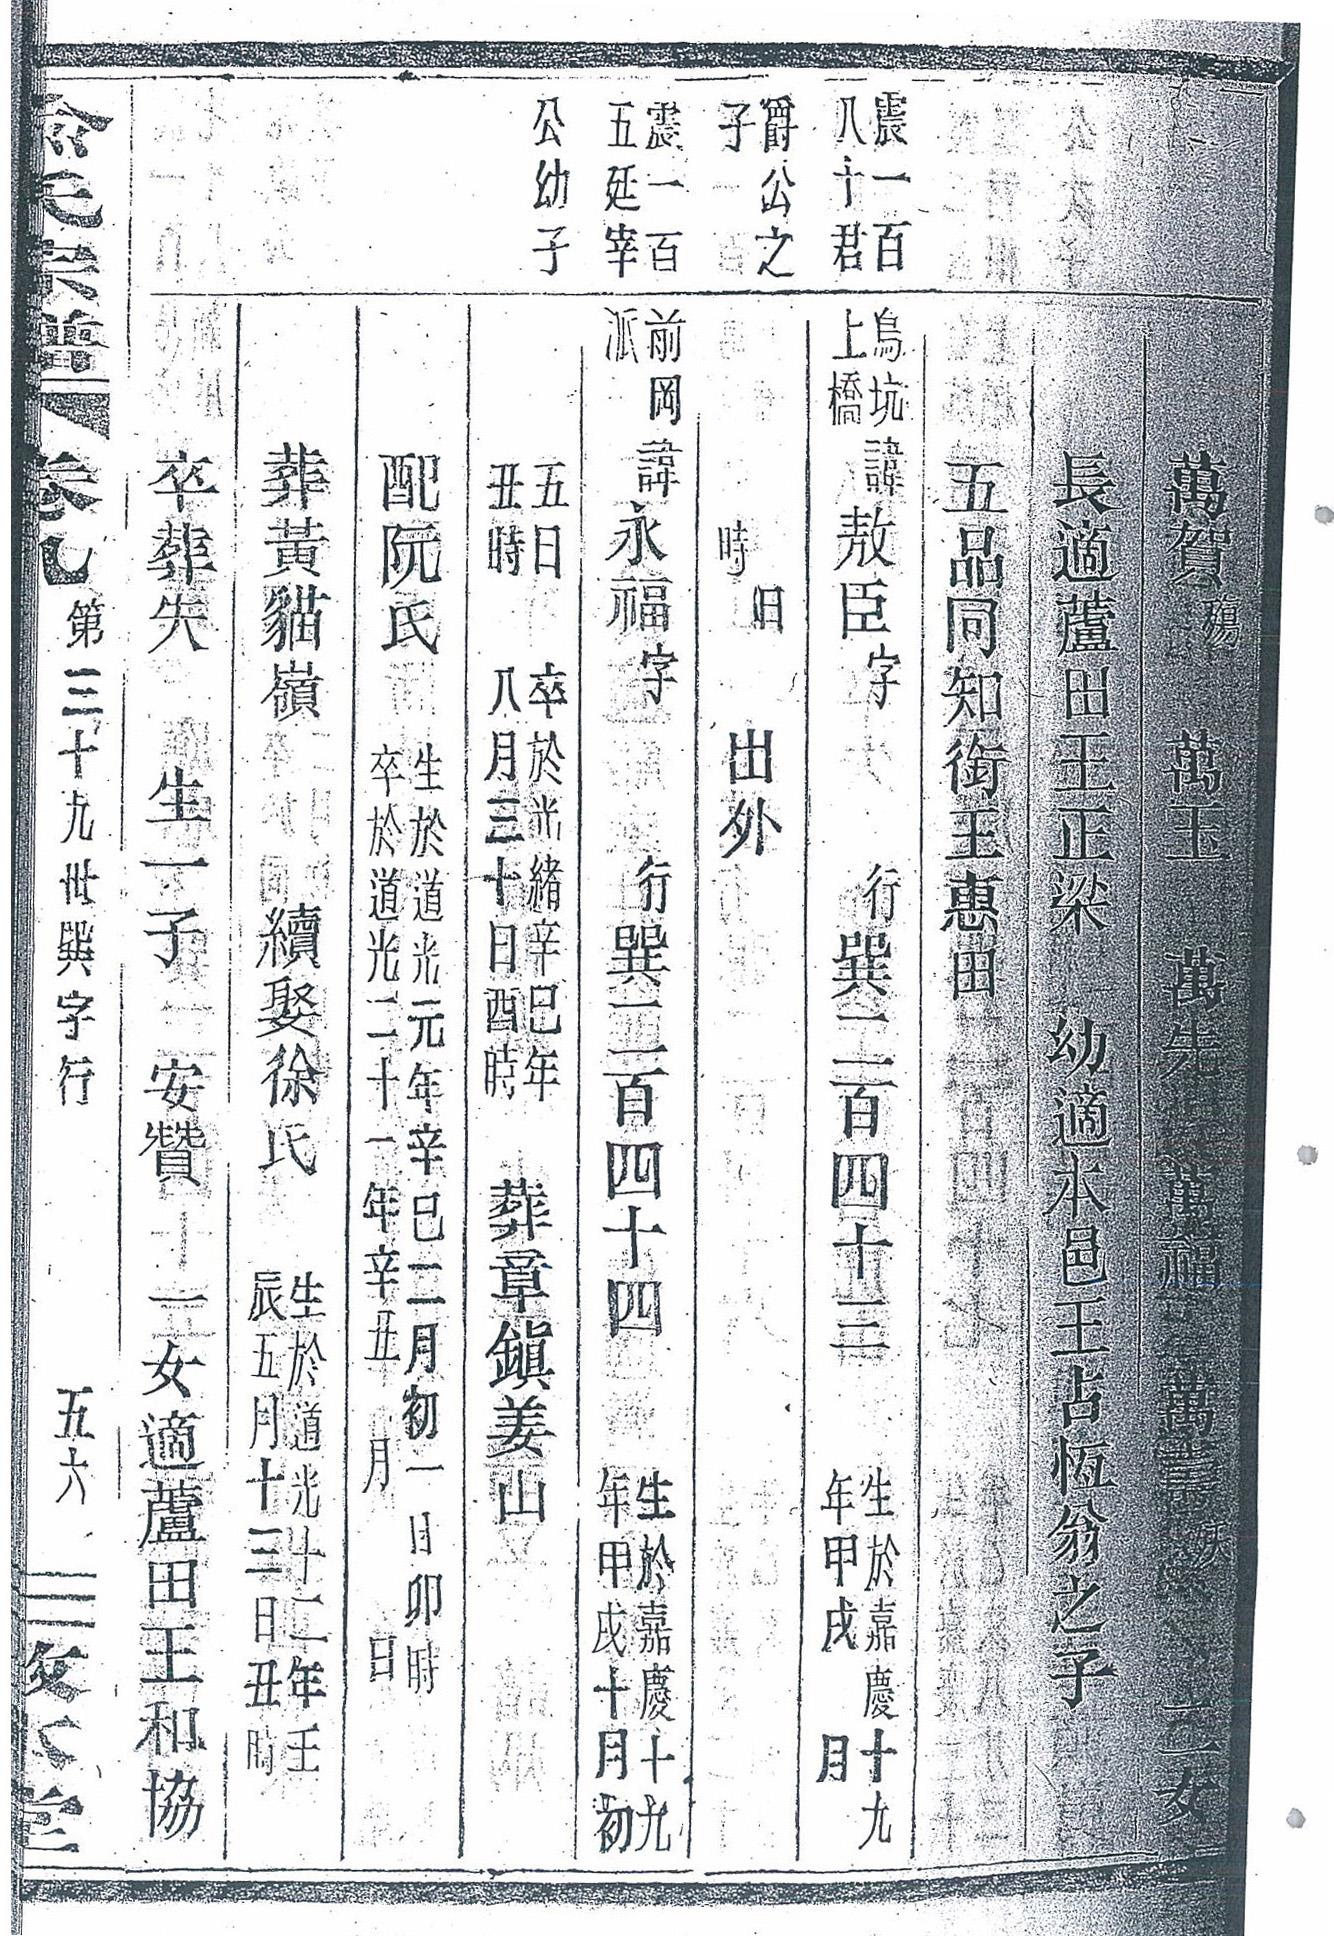 萬賀殤 萬玉 萬先 萬福 萬壽 二女
長適蘆田王正梁 幼適本邑王占恆翁之子
五品同知銜王惠田
震一百
八十君
烏坑
上橋
諱敖臣字 行巽二百四十三
生於嘉慶十九
年甲戌 月
爵公之
子
日
時
出外
震一百
五延宰
前岡
派
諱永福字 行巽二百四十四
生於嘉慶十九
年甲戌十月初
公幼子
五日
丑時
卒於光緒辛巳年
八月三十日酉時
葬章鎮姜山
配阮氏
生於道光元年辛巳二月初一日卯時
卒於道光二十一年辛丑 月 日
葬黃貓嶺 續娶徐氏
生於道光十二年壬
辰五月十三日丑時
卒葬失 生一子 安贊 一女適蘆田王和協
俞氏宗譜 卷九 第三十九世巽字行 五六 敦本堂